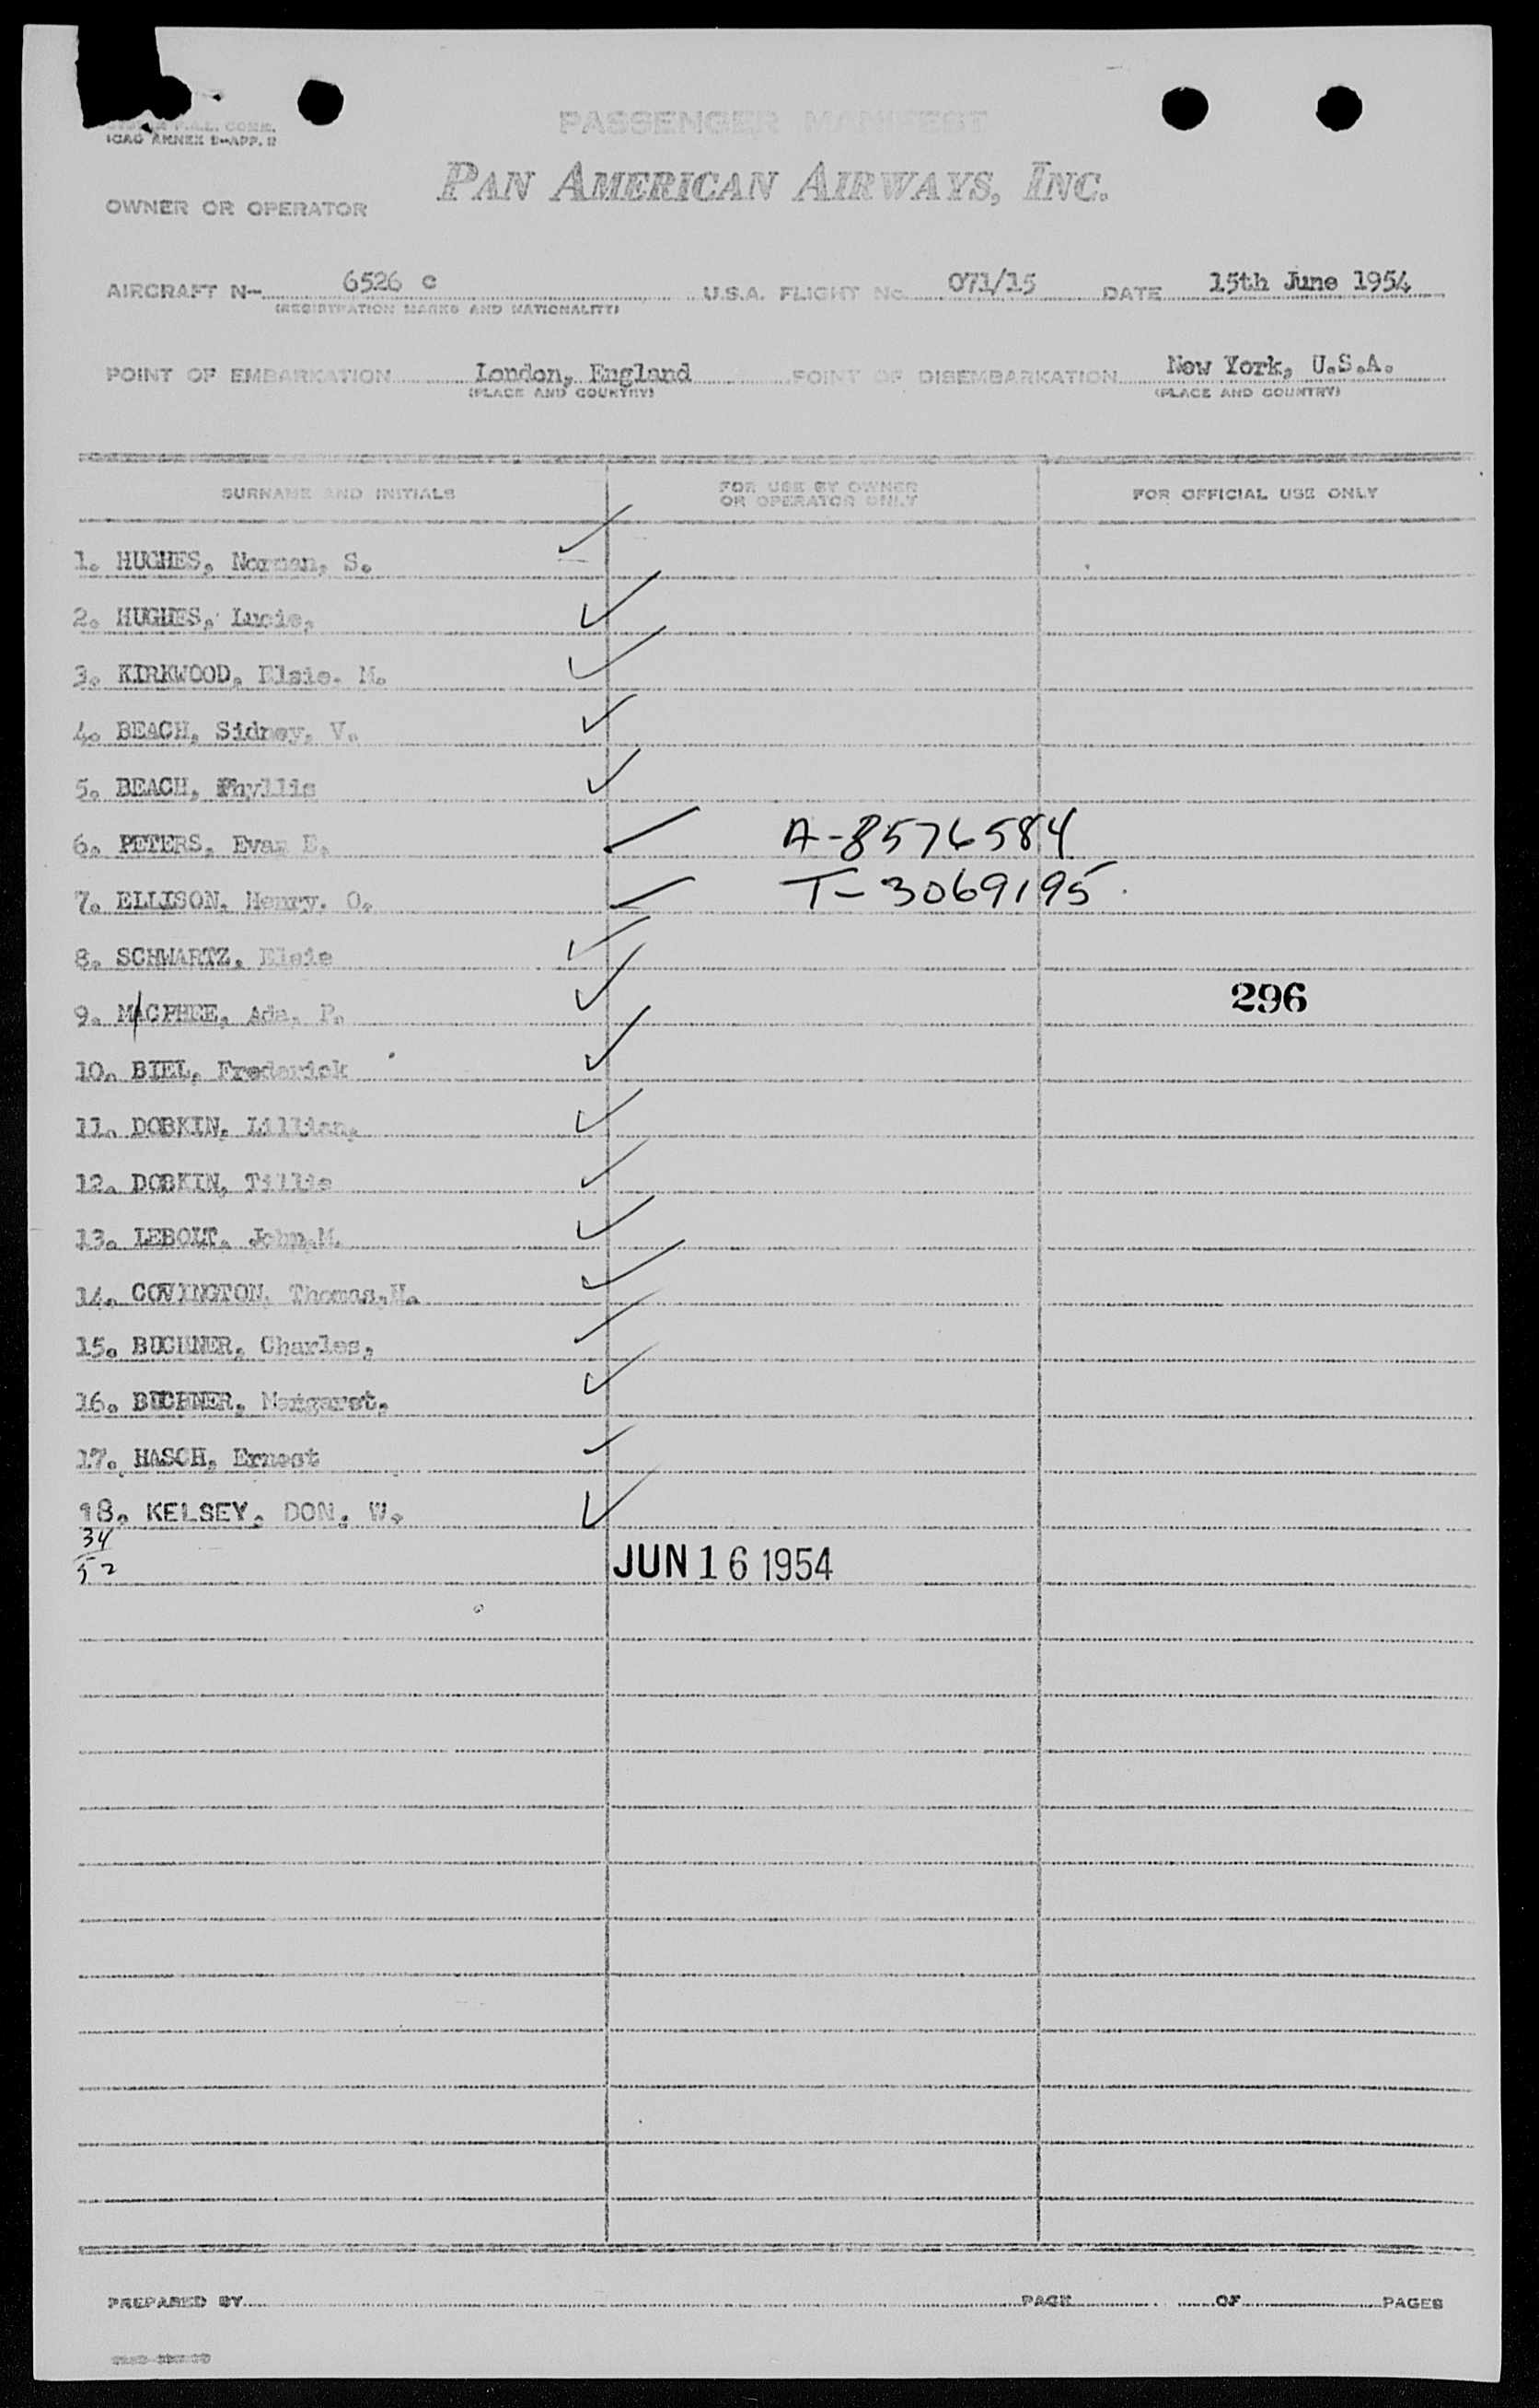 ICAO ANNEX 9-APP. 2
PASSENGER MANIFEST
OWNER OR OPERATOR PAN AMERICAN AIRWAYS, INC.
AIRCRAFT N- 6526 c U.S.A. FLIGHT No. 071/15 DATE 15th June 1954
(REGISTRATION MARKS AND NATIONALITY)
POINT OF EMBARKATION London, England POINT OF DISEMBARKATION New York, U.S.A.
(PLACE AND COUNTRY) (PLACE AND COUNTRY)
SURNAME AND INITIALS FOR USE BY OWNER OR OPERATOR ONLY FOR OFFICIAL USE ONLY
1. HUGHES, Norman, S.
2. HUGHES, Lucie,
3. KIRKWOOD, Elsie. M.
4. BEACH, Sidney, V.
5. BEACH, Phyllis
6. PETERS, Evan E. A-8576584
7. ELLISON, Henry. O. T-3069195
8. SCHWARTZ, Elsie
9. MACPHEE, Ada, P. 296
10. BIEL, Frederick
11. DOBKIN, Lillian,
12. DOBKIN, Tillie
13. LEBOLT, John.M.
14. COVINGTON, Thomas.H.
15. BUCHNER, Charles,
16. BUCHNER, Margaret,
17. HASCH, Ernest
18. KELSEY, DON. W.
34
52 JUN 16 1954
PREPARED BY PAGE OF PAGES